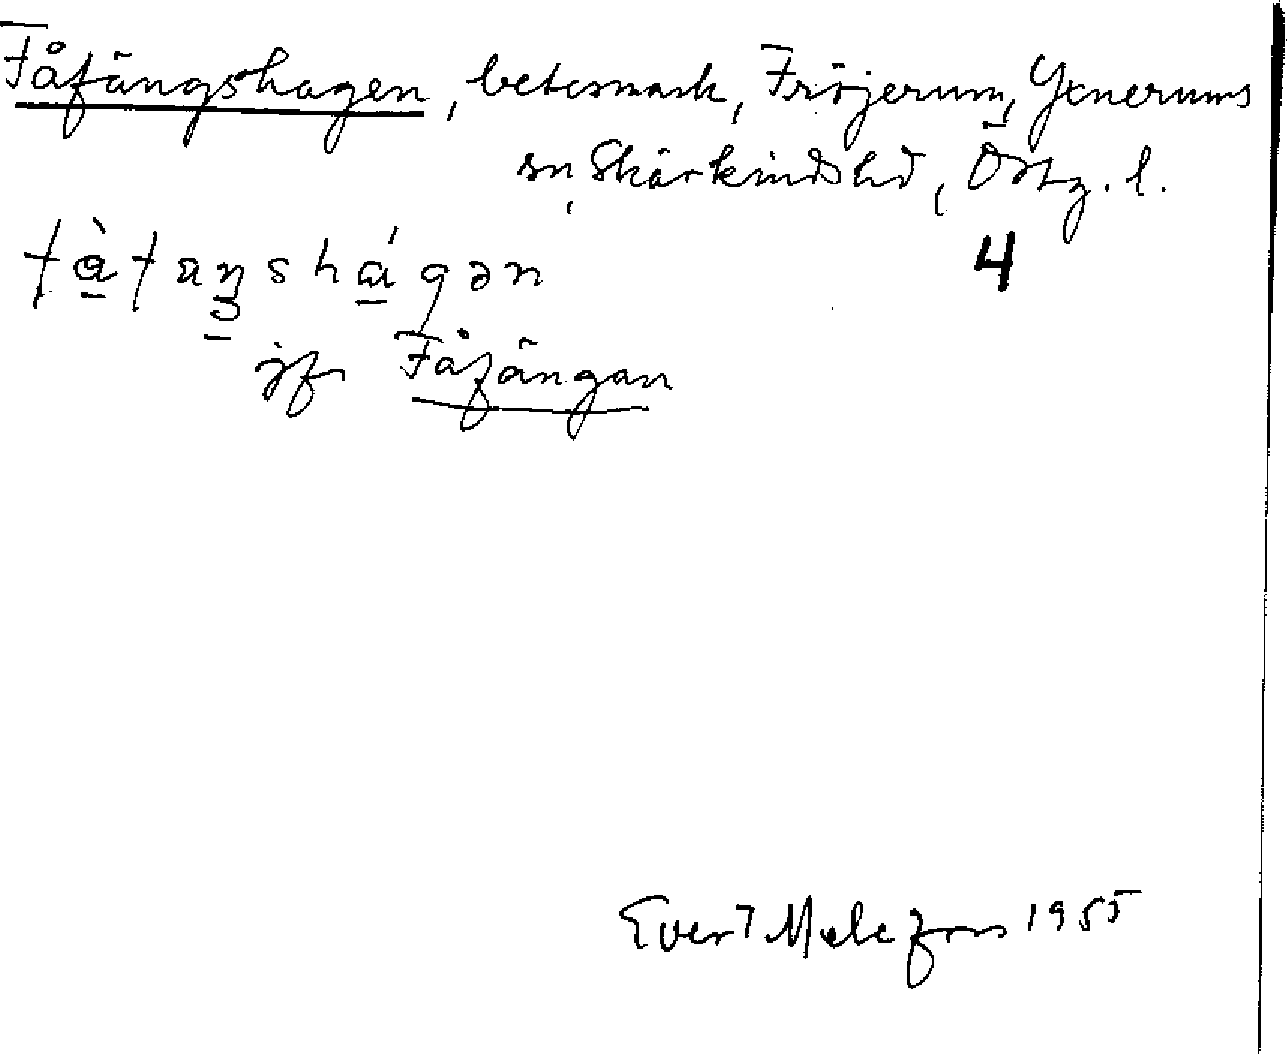 Fåfängshagen, betesmark, Fröjerum, Yxnerums
sn, Skärkinds hd, Östg. l.
4
jfr Fåfängan
Evert Melefors 1955